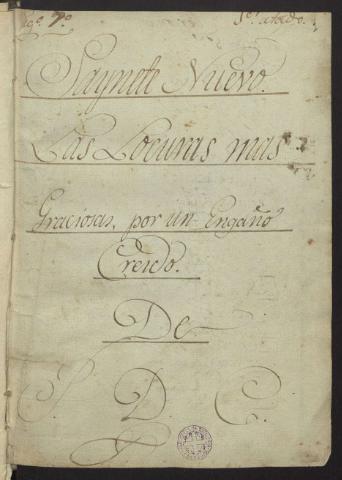 Leg.º 7.º
Saynete Nuevo.
Las Locuras mas
Graciosas, por un Engaño
Creido.
De
S. D. C.